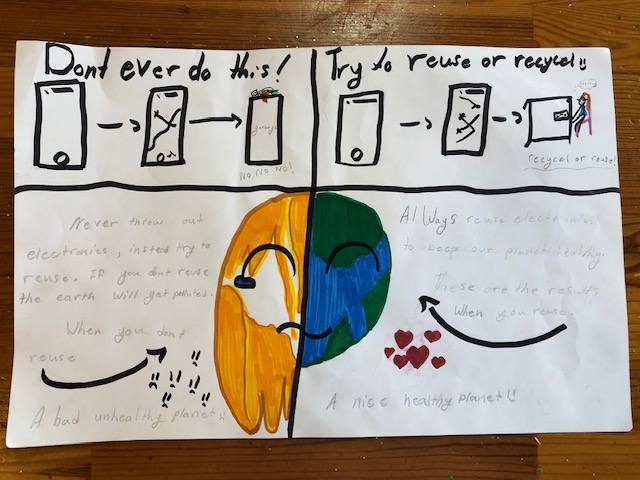 Dont ever do this!
garbage
No No No!
Try to reuse or recycel!!
recycel or reuse!
Never throw out
electronics, instead try to
reuse. If you dont reuse
the earth will get polluted.
When you dont
reuse
A bad unhealthy planet!!
Always reuse electronics
to keep our planet healthy.
These are the results
When you reuse.
A nice healthy planet!!